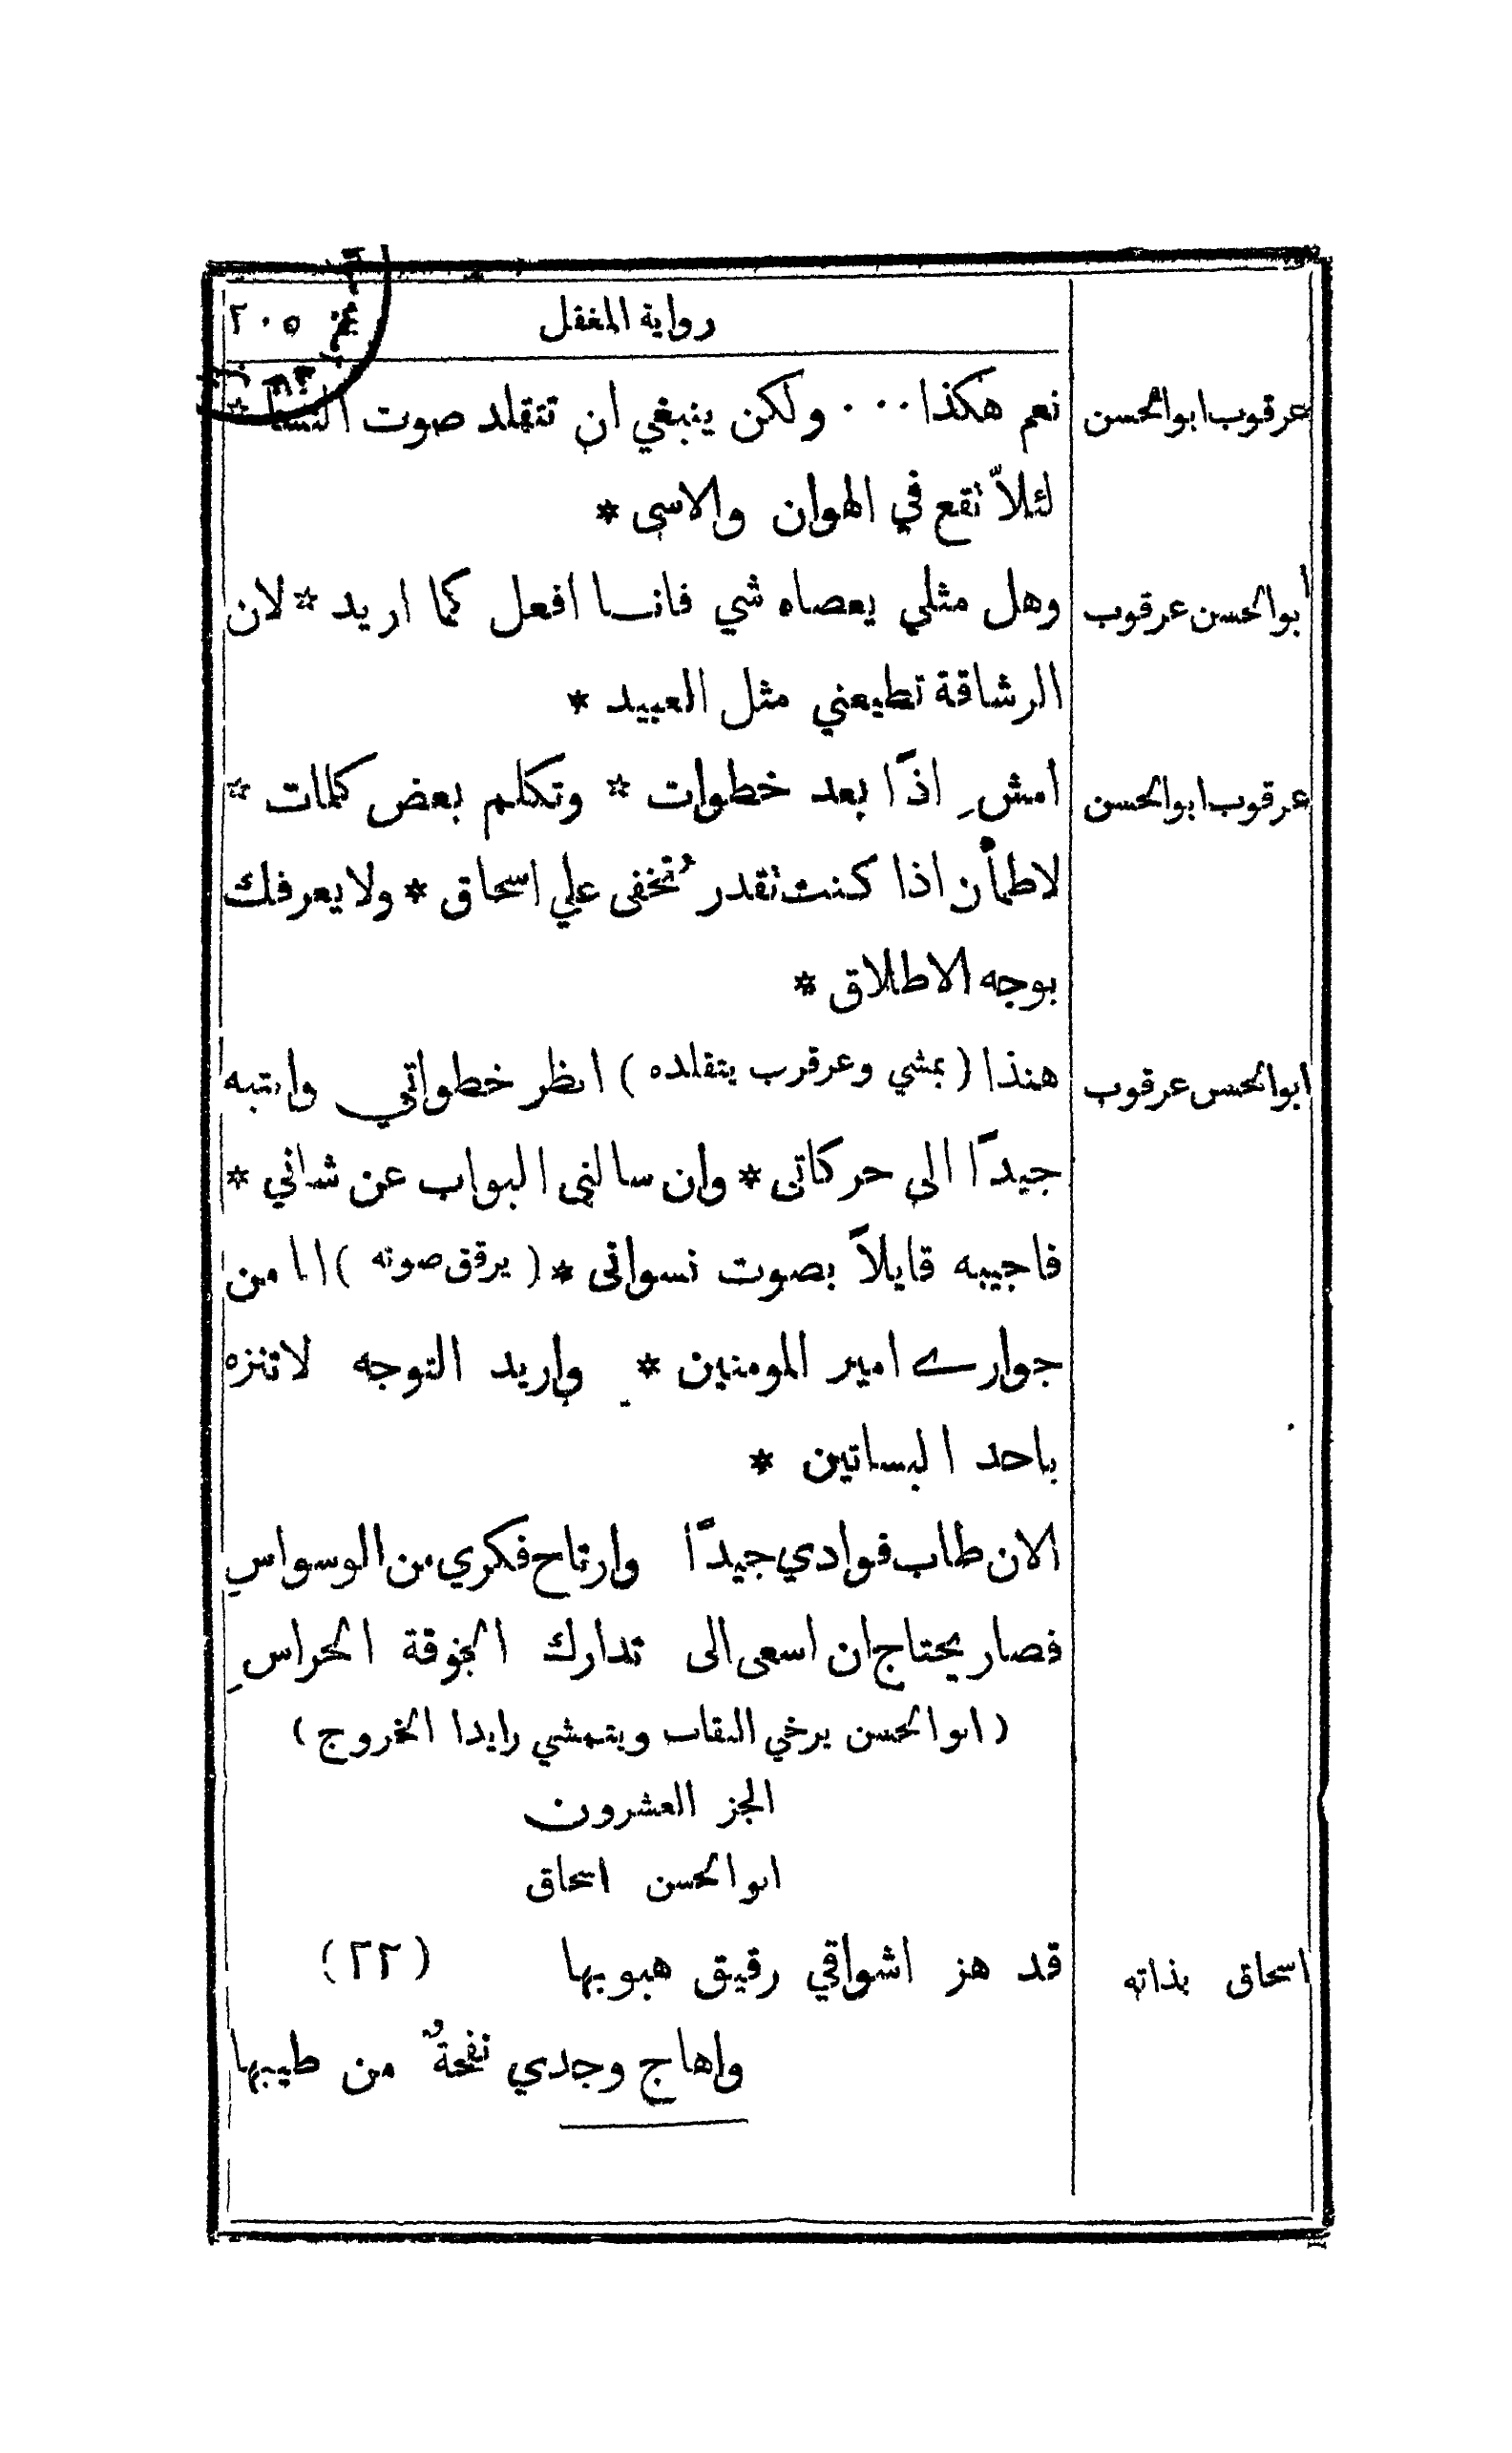 رواية المغفل ٢٠٥
عرقوب ابوالحسن نعم هكذا ٠٠٠ ولكن ينبغي ان تتقلد صوت النسا *
لئلاّ نقع في الهوان والاسى *
ابوالحسن عرقوب وهل مثلي يعصاه شي فانسا افعل كما اريد * لان
الرشاقة تطيعني مثل العبيد *
عرقوب ابوالحسن امشِ اذًا بعد خطوات * وتكلم بعض كلمات *
لاطمأن اذا كنت تقدر تُخفى علي اسحاق * ولا يعرفك
بوجه الاطلاق *
ابوالحسن عرقوب هنذا ( يمشي وعرقرب يتقلده ) انظر خطواتي وانتبه
جيدًا الى حركاتى * وان سالنى البواب عن شاني *
فاجيبه قايلاً بصوت نسواتى * ( يرقق صوته ) انا من
جوارے امير المومنين * واريد التوجه لاتنزه
باحد البساتين *
الان طاب فوادي جيدًا وارتاح فكري من الوسواسِ
فصار يحتاج ان اسعى الى تدارك الجوقة الحراسِ
( ابوالحسن يرخي النقاب ويتمشي رايدا الخروج )
الجز العشرون
ابوالحسن اسحاق
اسحاق بذاته قد هز اشواقي رقيق هبوبها ( ٢٢ )
واهاج وجدي نفحةٌ من طيبها